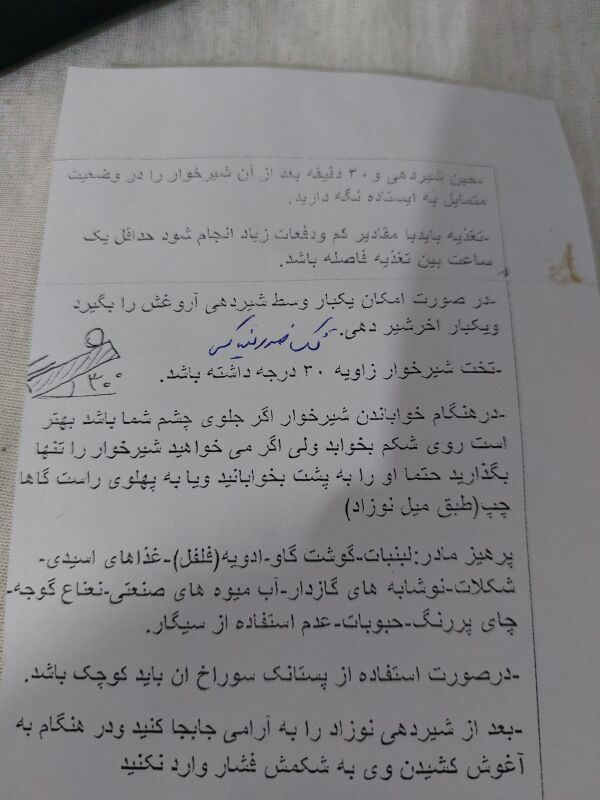 -حین شیردهی و۳۰ دقیقه بعد از آن شیرخوار را در وضعیت
متمایل به ایستاده نگه دارید.
-تغذیه بایدبا مقادیر کم ودفعات زیاد انجام شود حداقل یک
ساعت بین تغذیه فاصله باشد.
-در صورت امکان یکبار وسط شیردهی آروغش را بگیرد
ویکبار اخرشیر دهی.
-تخت شیرخوار زاویه ۳۰ درجه داشته باشد.
۳۰°
-درهنگام خواباندن شیرخوار اگر جلوی چشم شما باشد بهتر
است روی شکم بخوابد ولی اگر می خواهید شیرخوار را تنها
بگذارید حتما او را به پشت بخوابانید ویا به پهلوی راست گاها
چپ(طبق میل نوزاد)
پرهیز مادر:لبنیات-گوشت گاو-ادویه(فلفل)-غذاهای اسیدی-
شکلات-نوشابه های گازدار-آب میوه های صنعتی-نعناع گوجه-
چای پررنگ-حبوبات-عدم استفاده از سیگار.
-درصورت استفاده از پستانک سوراخ ان باید کوچک باشد.
-بعد از شیردهی نوزاد را به آرامی جابجا کنید ودر هنگام به
آغوش کشیدن وی به شکمش فشار وارد نکنید